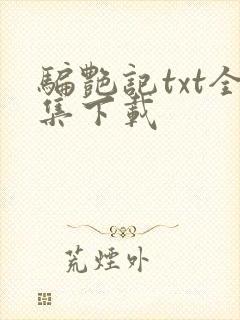 骗艷記txt全
集下載
荒煙外